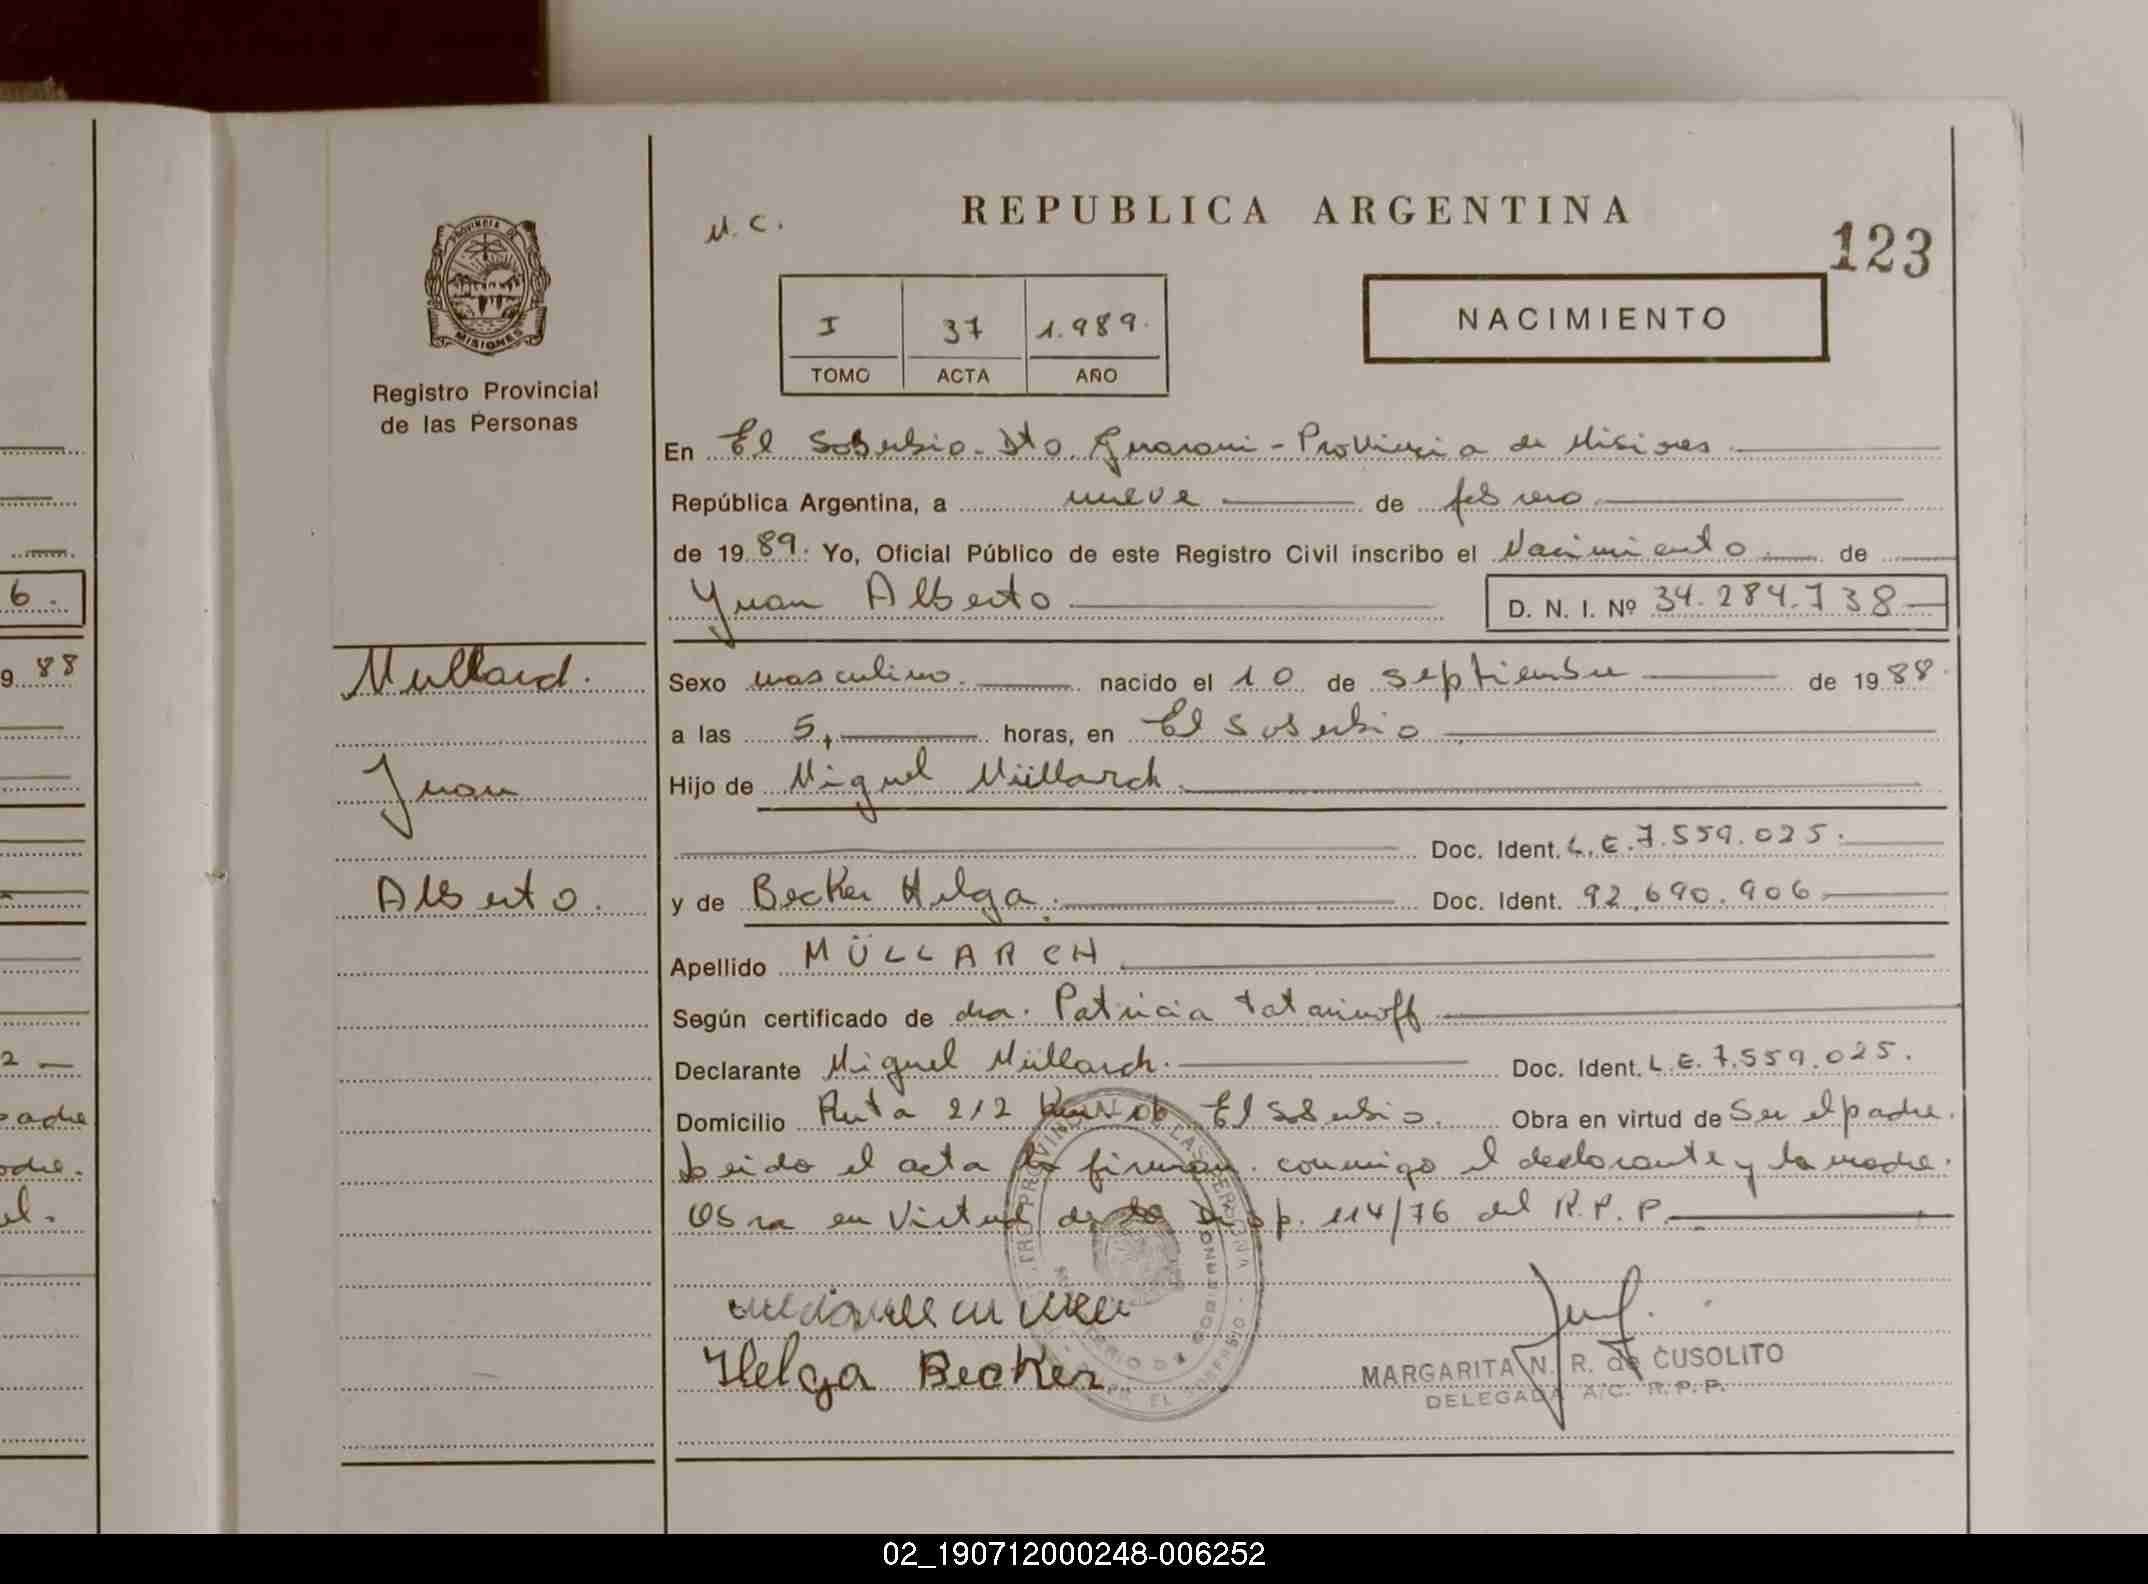 REPUBLICA ARGENTINA
N.C.
123
PROVINCIA DE
MISIONES
Registro Provincial
de las Personas
I 37 1.989.
TOMO ACTA AÑO
NACIMIENTO
En El Soberbio - Dto. Guarani - Provincia de Misiones
República Argentina, a nueve de febrero
de 19 89. Yo, Oficial Público de este Registro Civil inscribo el Nacimiento de
Juan Alberto D. N. I. Nº 34.284.738
6.
9 88
Mullard.
Juan
Alberto.
Sexo masculino. nacido el 10 de septiembre de 19 88.
a las 5, horas, en El Soberbio
Hijo de Miguel Müllarch
Doc. Ident. L.E. 7.559.025.
y de Becker Helga. Doc. Ident. 92.690.906
Apellido MÜLLARCH
Según certificado de dra. Patricia Tatarinoff
Declarante Miguel Müllarch. Doc. Ident. L.E. 7.559.025.
Domicilio Ruta 212 El Soberbio. Obra en virtud de Ser el padre.
Leido el acta la firman conmigo el declarante y la madre.
Obra en virtud de la Disp. 114/76 del R.P.P.
Helga Becker
MARGARITA N. R. de CUSOLITO
DELEGADA A/C. R.P.P.
02_190712000248-006252